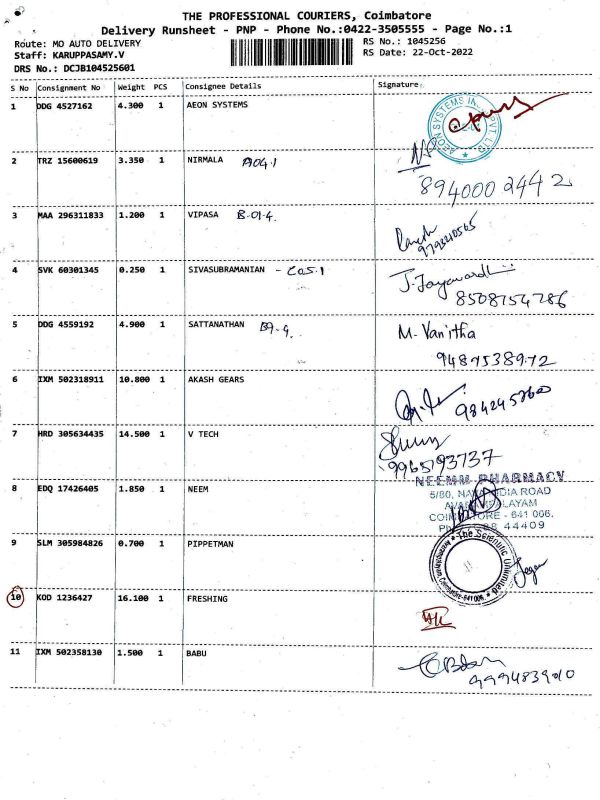 THE PROFESSIONAL COURIERS, Coimbatore
Delivery Runsheet - PNP - Phone No.:0422-3505555 - Page No.:1
Route: MO AUTO DELIVERY RS No.: 1045256
Staff: KARUPPASAMY.V RS Date: 22-Oct-2022
DRS No.: DCJB104525601
S No Consignment No Weight PCS Consignee Details Signature
1 DDG 4527162 4.300 1 AEON SYSTEMS
2 TRZ 15600619 3.350 1 NIRMALA A04.1
8940002442
3 MAA 296311833 1.200 1 VIPASA B-01-4.
4 SVK 60301345 0.250 1 SIVASUBRAMANIAN - C05.1
8508154786
5 DDG 4559192 4.900 1 SATTANATHAN B9-9. M. Vanitha
9489538972
6 IXM 502318911 10.800 1 AKASH GEARS
7 HRD 305634435 14.500 1 V TECH
9965193737
NEEMM PHARMACY
8 EDQ 17426405 1.850 1 NEEM 5/80, ROAD
COIMBATORE - 641 006.
44409
9 SLM 305984826 0.700 1 PIPPETMAN The Scientific Unlimited
Coimbatore-641 006.
10 KOD 1236427 16.100 1 FRESHING
11 IXM 502358130 1.500 1 BABU
9994839010